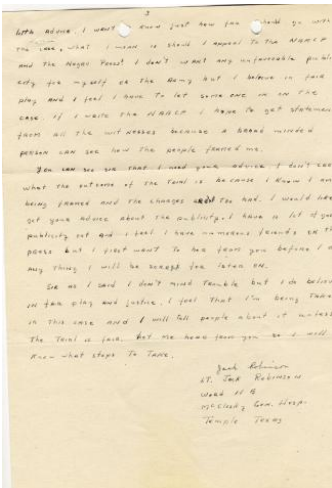 3
little advice. I want to know just how far I should go with
the case, what I mean is should I appeal to the NAACP
and the Negro Press? I don't want any unfavorable publi
city for myself or the Army but I believe in fair
play and I feel I have to let some one in on the
case. If I write the NAACP I hope to get statements
from all the witnesses because a broad minded
person can see how the people framed me.
You can see sir that I need your advice I don't care
what the outcome of the trial is because I know I am
being framed and the charges aren't too bad. I would like
get your advice about the publicity. I have a lot of good
publicity out and I feel I have numerous friends on the
press but I first want to hear from you before I do
any thing I will be sorry for later on.
Sir as I said I don't mind trouble but I do believe
in fair play and justice. I feel that I'm being taken
in this case and I will tell people about it unless
the trial is fair. Let me hear from you so I will
know what steps to take.
Jack Robinson
Lt. Jack Robinson
Ward 11 B
McClosky Gen. Hospi
Temple Texas